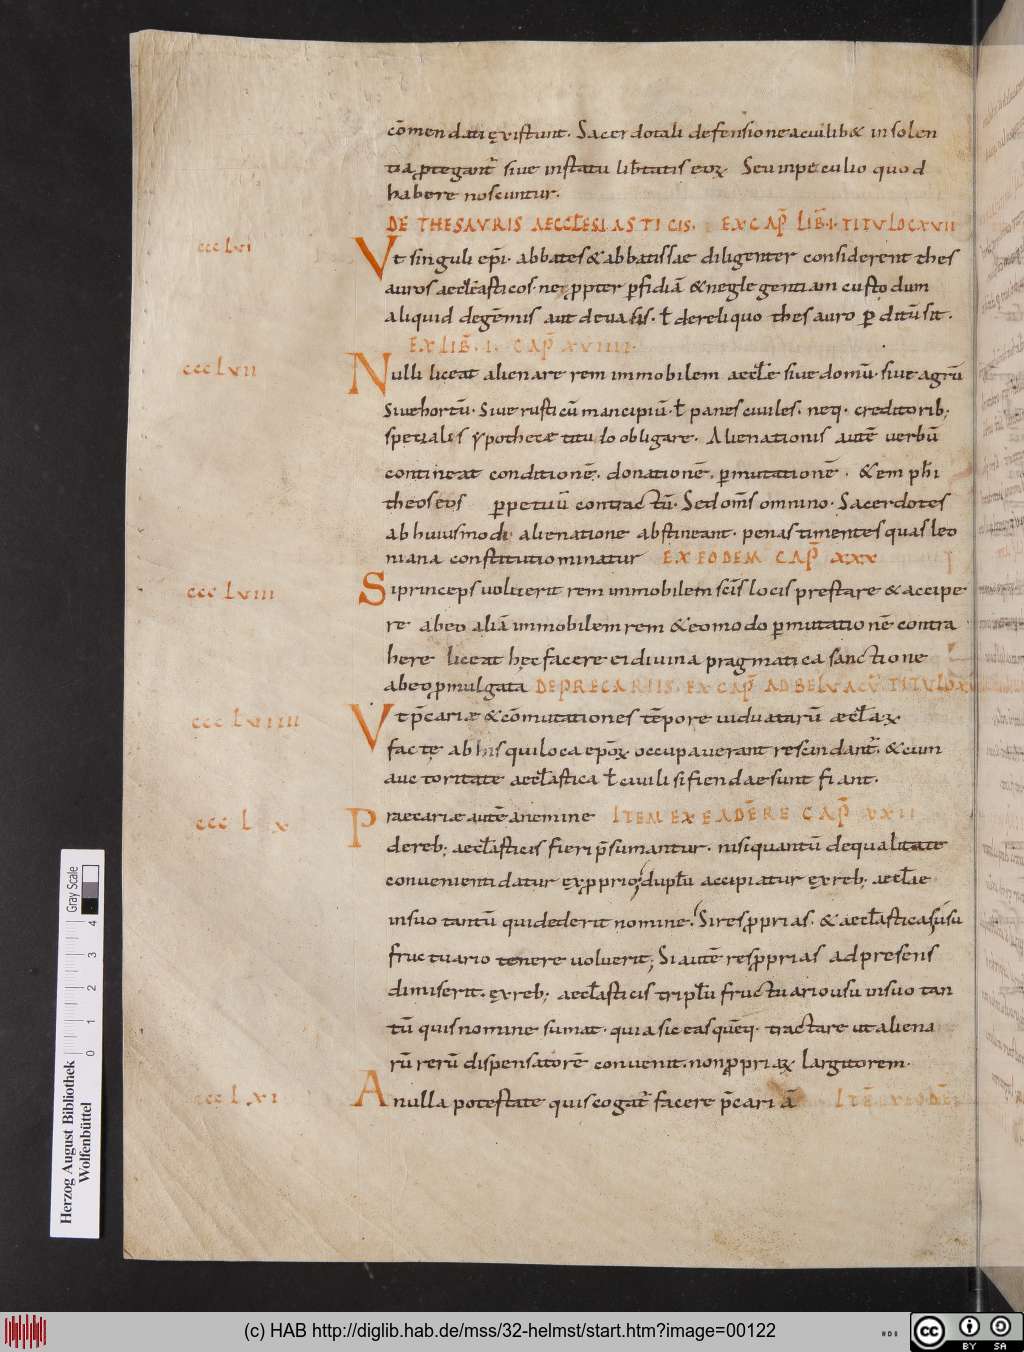 cōmendati ęxistunt. Sacerdotali defensione a ciuilib& insolen
tia ꝑtegant᷑ siue in statu lib̄tatis eoꝝ. Seu in peculio quod
habere noscuntur.
DE THESAVRIS AECCL̄ESIASTICIS. EX CAP̄ LIB̄. I. TITVLO CXVII
cccLvi
Vt singuli ep̄i. abbates & abbatissae diligenter considerent thes
auros aeccl̄easticos. ne ꝓpter ꝑfidiā & neglegentiam custodum
aliquid de gēmis aut de uasis. ł de reliquo thesauro ꝑditū sit.
EX LIB̄. I. CAP̄ XVIIII.
cccLvii
Nulli liceat alienare rem immobilem aeccl̄e siue domū. siue agrū
Siue hortū. Siue rusticū mancipiū. ł panes ciuiles. neq. creditorib;
specialis ypothecæ titulo obligare. Alienationis autē uerbū
contineat conditionē. donationē. ꝑmutationē. & emphi
theoseos ꝑpetuū contractū. Sed om̄s omnino. Sacerdotes
ab huiusmodi alienatione abstineant. penas timentes quas leo
niana constitutio minatur EX EODEM CAP̄ XXX
ccc Lviii
Si princeps uoluerit rem immobilem sc̄is locis prestare & accipe
re ab eo aliā immobilem rem & eo modo ꝑmutationē contra
here liceat hęc facere ei diuina pragmatica sanctione
ab eo ꝓmulgata DE PRECARIIS. EX CAP̄ AD BELVACV̄ TITVLO XI
ccc Lviiii
Vt p̄cariæ & cōmutationes tēpore uiduatarū æccl̄aꝝ
factę ab his qui loca ep̄oꝝ occupauerant rescindant᷑. & cum
auctoritate aeccl̄astica ł ciuili si fiendae sunt fiant.
ccc L x
Praecariæ autē a nemine ITEM EX EADĒ RE CAP̄ XXII
de reb; aeccl̄asticis fieri p̄sumantur. nisi quantū de qualitate
conuenienti datur ęx ꝓprio; duplū accipiatur ęx reb; aeccl̄ae
in suo tantū qui dederit nomine. Si res ꝓprias. & aeccl̄asticas usu
fructuario tenere uoluerit; Si autē res ꝓprias ad presens
dimiserit. ęx reb; aeccl̄asticis triplū fructuario usu in suo tan
tū quis nomine sumat. quia sic eas quēq. tractare ut aliena
rū rerū dispensatorē conuenit. non ꝓpriaꝝ largitorem.
ccc L xi
A nulla potestate quis cogat᷑ facere p̄cariā ITĒ EX EODĒ
Herzog August Bibliothek
Wolfenbüttel
0 1 2 3 4
Gray Scale
(c) HAB http://diglib.hab.de/mss/32-helmst/start.htm?image=00122
cc BY SA